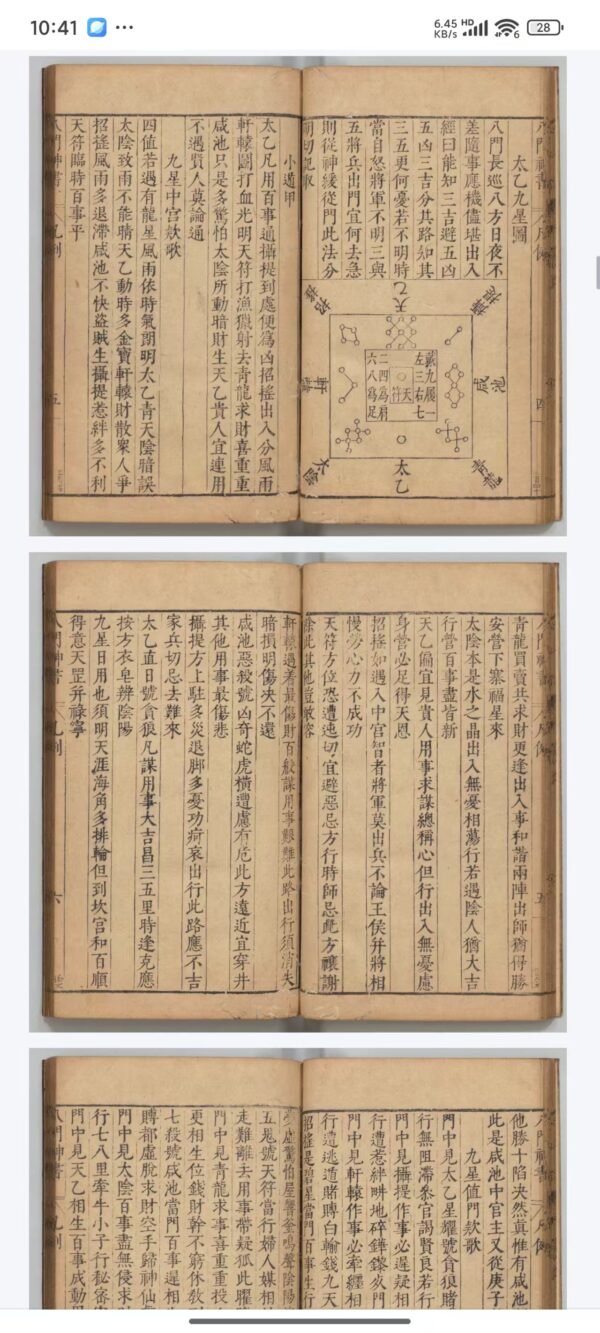 10:41
6.45 KB/s
HD
6
28
太乙九星圖
八門長巡八方日夜不
差隨事應機儘堪出入
經曰能知三吉避五凶
五凶三吉分共路知其
三五更何憂若不明時
當自怒將軍不明三與
五將兵出門宜何去急
則從神緩從門此法分
明切記取
天乙
招搖
咸池
太陰
青龍
太乙
戴九履一
左三右七
二四為肩
六八為足
天符
四
小遁甲
太乙凡用百事通攝提到處便為凶招搖出入分風雨
軒轅鬬打血光明天符打漁獵射去青龍求財喜重重
咸池只是多驚怕太陰所動暗財生天乙貴人宜連用
不遇賢人莫論通
九星中宫欵歌
四值若遇有龍星風雨依時氣朗明太乙青天陰暗誤
太陰致雨不能晴天乙動時多金寶軒轅財散衆人爭
招搖風雨多退滯咸池不快盜賊生攝提惹絆多不利
天符臨時百事平
八門神書
凡例
五
青龍買賣共求財更逢出入事和諧兩陣出師猶得勝
安營下寨福星來
太陰本是水之晶出入無憂相蕩行若遇陰人猶大吉
行營百事盡皆新
天乙偏宜見貴人用事求謀總稱心但行出入無憂慮
身營必足得天恩
招搖如遇入中宫智者將軍莫出兵不論王侯并將相
慢勞心力不成功
天符方位恐遭迍切宜避惡忌方行時師忌此方禳謝
除此其他豈敢容
五
軒轅遇着最傷財百般謀用事艱難此路出行須消失
暗損明傷决不還
咸池惡殺號凶奇蛇虎橫遭慮有危此方遠近宜穿井
其他用事最傷悲
攝提方上駐多災退脚多憂功疴哀出行此路應不吉
家兵切忌去難來
太乙直日號貪狼凡謀用事大吉昌三五里時逢克應
按方衣皂辨陰陽
九星日用也須明天涯海角多排輪但到坎宫和百順
得意天罡并祿寧
八門神書
凡例
六
他勝十陷决然真惟有咸池
此是咸池中官主又從庚子
九星值門欵歌
門中見太乙星耀號貪狼賭
行無阻滯叅官謁賢良若行
門中見攝提作事必遲疑相
行遭惹絆畊地碎鏵
門中見軒轅作事必牽纒相
行遣逃遣賭賻白輸錢九天
招搖是碧星當門百事生行
夢虛驚怕屋響釜鳴聲陰陽
五鬼號天符當行婦人媒相
走難離去用事帶疑狐此曜
門中見青龍求事喜重重投
更相生位錢財幹不窮休敎
七殺號咸池當門百事遲相
賻都虛脫求財空手歸神仙
門中見太陰百事盡無侵求
行七八里牽牛小子行秘密
門中見天乙相生百事成動
八門神書